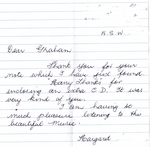 N.S.W.
Dear Graham
Thank you for your
note which I have just found
Many Thanks for
enclosing an extra C.D. It was
very kind of you.
I am having so
much pleasure listening to the
beautiful music.
Margaret